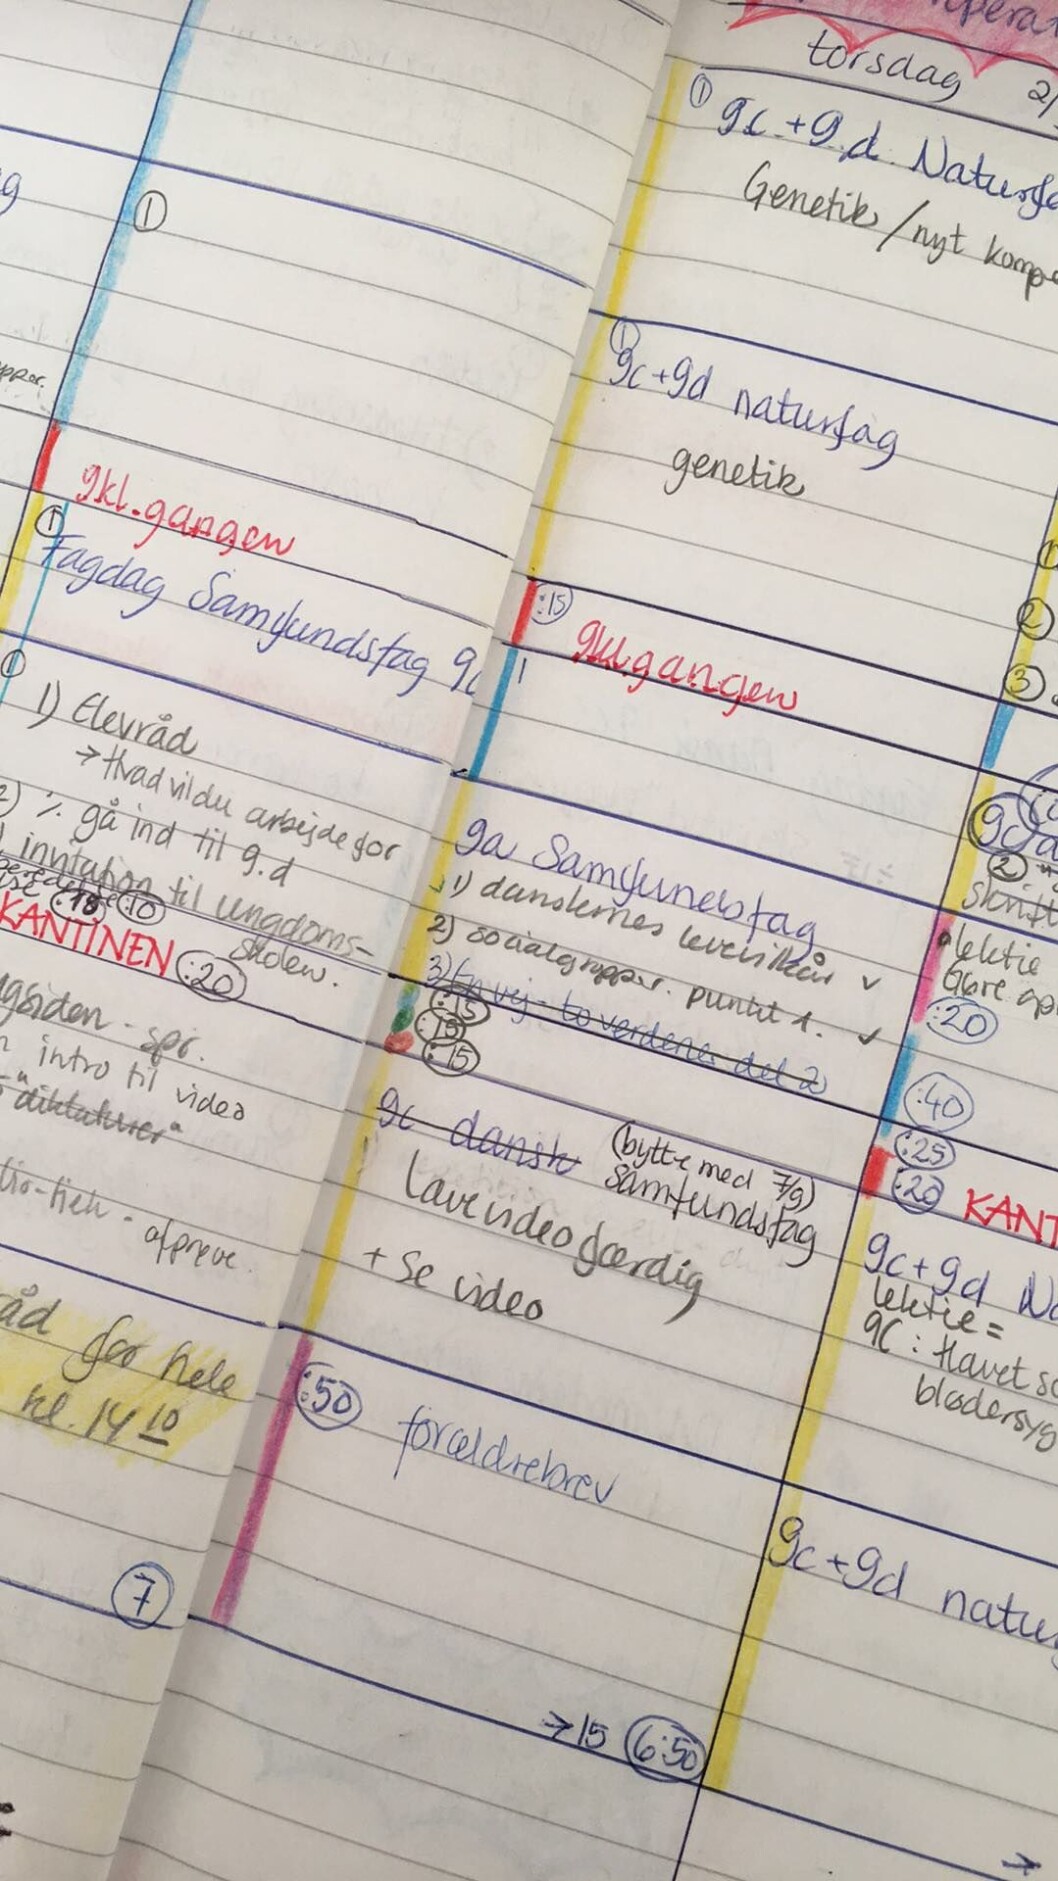 ①
9kl.gangen
①
Fagdag Samfundsfag 9c
①
1) Elevråd
→ Hvad vil du arbejde for
2) ٪ gå ind til 9.d
invitation til ungdoms-
skolen.
:10
KANTINEN :20
spr.
intro til video
"diktaturer"
afprøve.
råd for hele
kl. 14 10
7
torsdag
①
9c.+9.d. Naturfa
Genetik / nyt komp
①
9c+9d naturfag
genetik
:15
9kl.gangen
1
9a Samfundsfag
1) danskernes levevilkår ✓
2) socialgrupper. punkt 1. ✓
3) En vej - to verdener del 2
:15
:15
:15
9c dansk (bytte med 7/9)
samfundsfag
Lave video færdig
+ se video
:50
forældrebrev
→15 6:50
①
②
③
②
lektie
:20
:40
:25
:20 KANT
9c+9d Na
lektie =
9c: Havet so
blødersyg
9c+9d natur
→